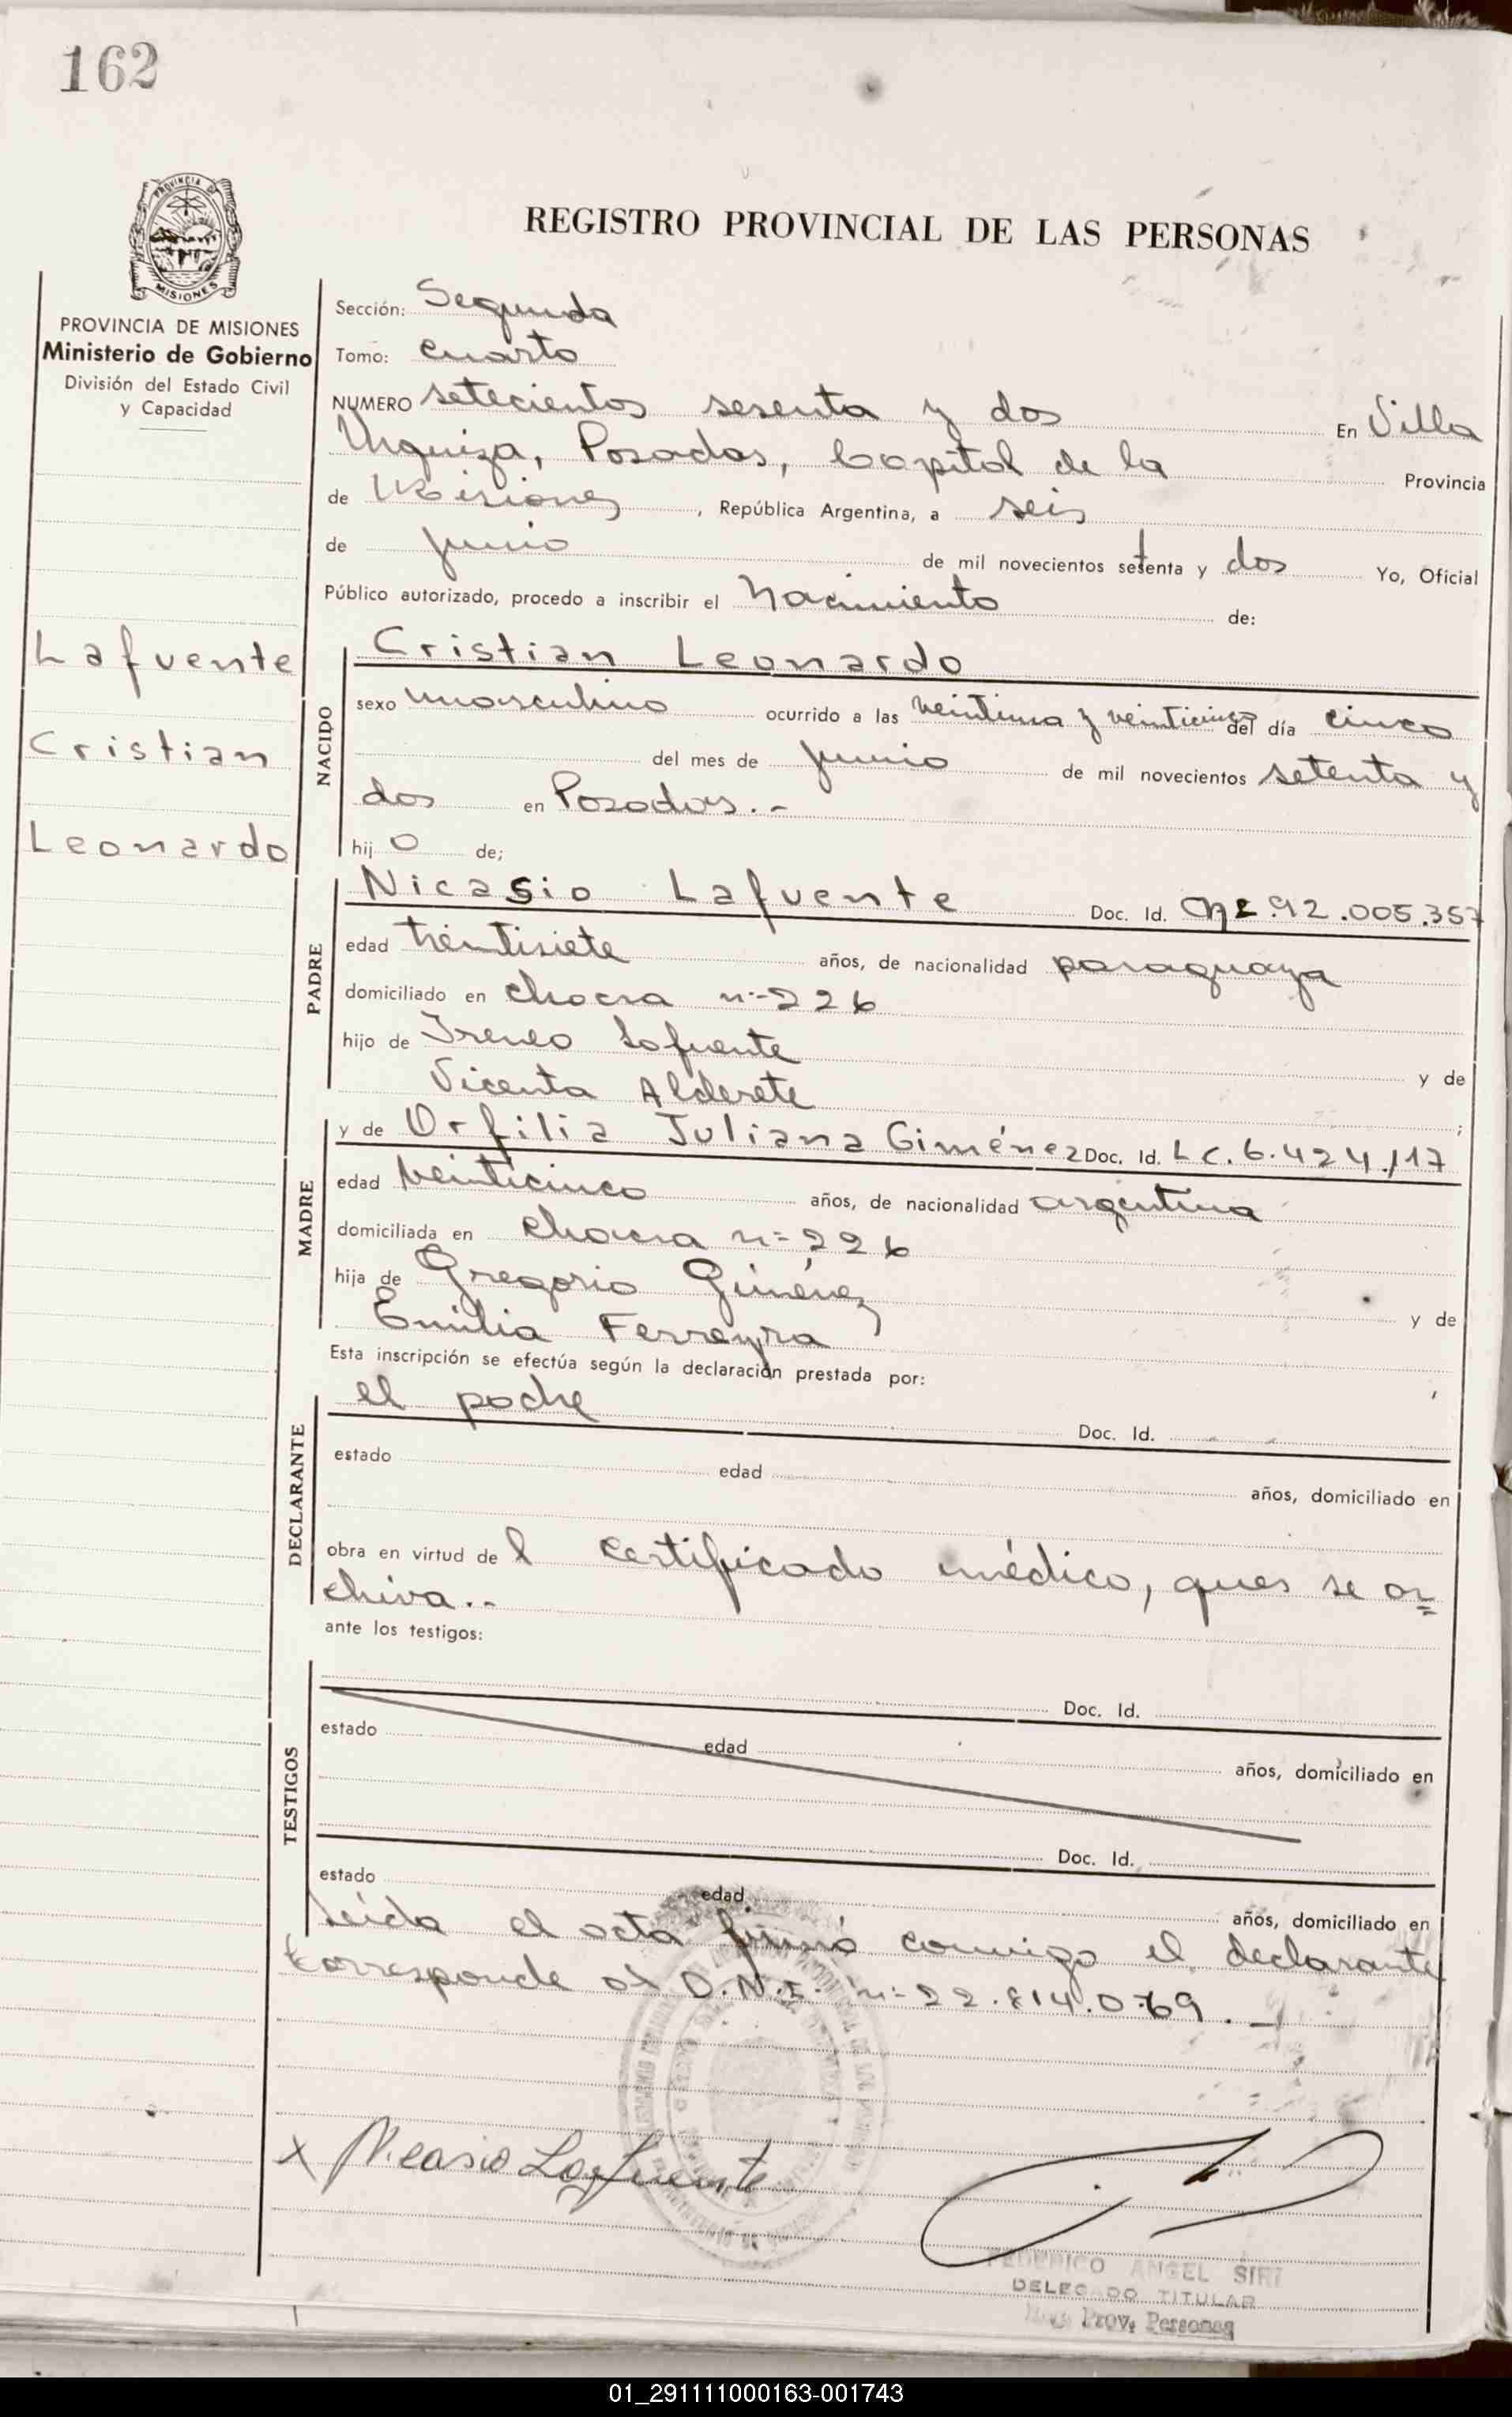 162
PROVINCIA DE MISIONES
REGISTRO PROVINCIAL DE LAS PERSONAS
PROVINCIA DE MISIONES
Ministerio de Gobierno
División del Estado Civil
y Capacidad
Sección: Segunda
Tomo: Cuarto
NUMERO setecientos sesenta y dos En Villa
Urquiza, Posadas, Capital de la Provincia
de Misiones, República Argentina, a seis
de junio de mil novecientos setenta y dos Yo, Oficial
Público autorizado, procedo a inscribir el Nacimiento de:
Lafuente
Cristian
Leonardo
NACIDO
Cristian Leonardo
sexo masculino ocurrido a las veintiuna y veinticinco del día cinco
del mes de junio de mil novecientos setenta y
dos en Posadas.-
hijo de;
PADRE
Nicasio Lafuente Doc. Id. 92.005.357
edad treintisiete años, de nacionalidad paraguaya
domiciliado en chacra n:-226
hijo de Ireneo Lafuente y de
Vicenta Alderete ;
MADRE
y de Orfilia Juliana Giménez Doc. Id. L C. 6.424.117
edad veinticinco años, de nacionalidad argentina
domiciliada en chacra n:=226
hija de Gregorio Giménez y de
Emilia Ferreyra
Esta inscripción se efectúa según la declaración prestada por: ,
DECLARANTE
el padre Doc. Id.
estado edad años, domiciliado en
obra en virtud del certificado médico, ques se ar=
chiva.-
ante los testigos:
TESTIGOS
Doc. Id.
estado edad años, domiciliado en
Doc. Id.
estado edad años, domiciliado en
Leída el acta firmó conmigo el declarante
Corresponde al D.N.I. n:- 22.814.069.-
x Nicasio Lafuente
FEDERICO ANGEL SIRI
DELEGADO TITULAR
Prov. Personas
01_291111000163-001743